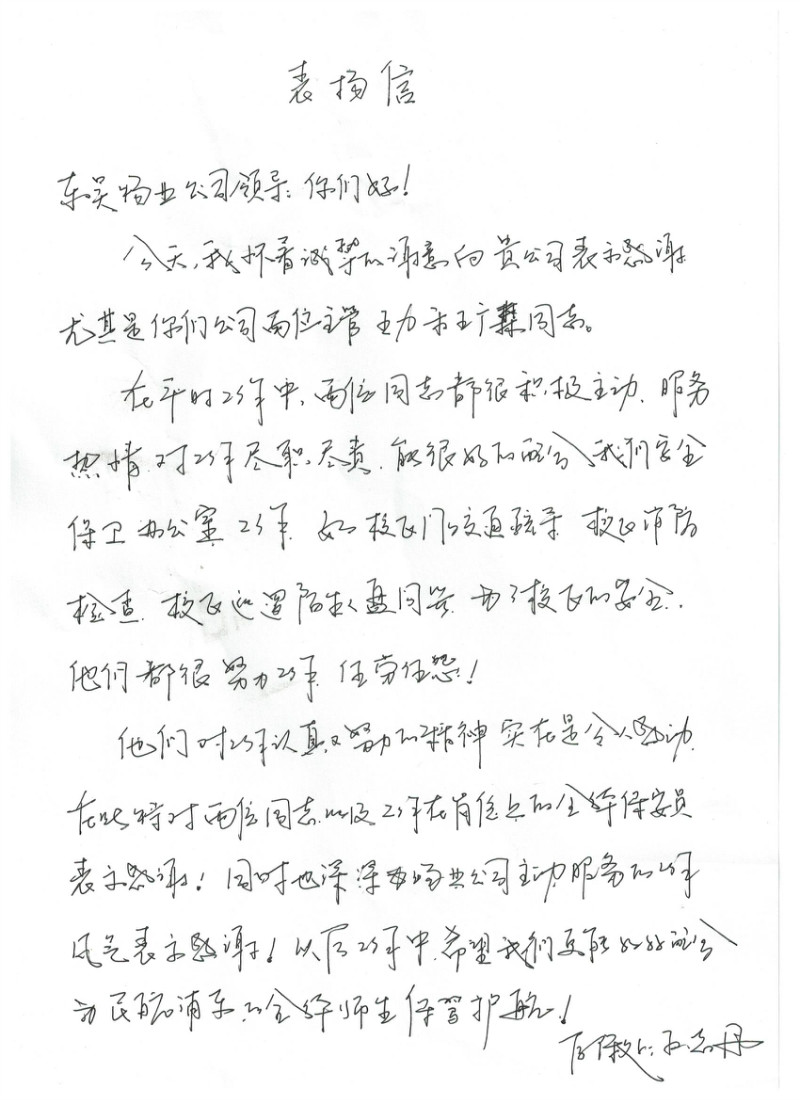 表扬信
东吴物业公司领导：你们好！
今天，我怀着诚挚的谢意向贵公司表示感谢
尤其是你们公司两位主管王力和王广同志。
在平时工作中，两位同志都很积极主动、服务
热情，对工作尽职尽责，能很好的配合我们安全
保卫办公室工作，如校区门口交通疏导，校区消防
检查，校区巡逻陌生人盘问等，为了校区的安全，
他们都很努力工作，任劳任怨！
他们对工作认真又努力的精神实在是令人感动，
在此特对两位同志以及工作在岗位上的全体保安员
表示感谢！同时也深深物业公司主动服务的工作
风气表示感谢！以后工作中，希望我们更能好好配合
为民航浦东的全体师生保驾护航！